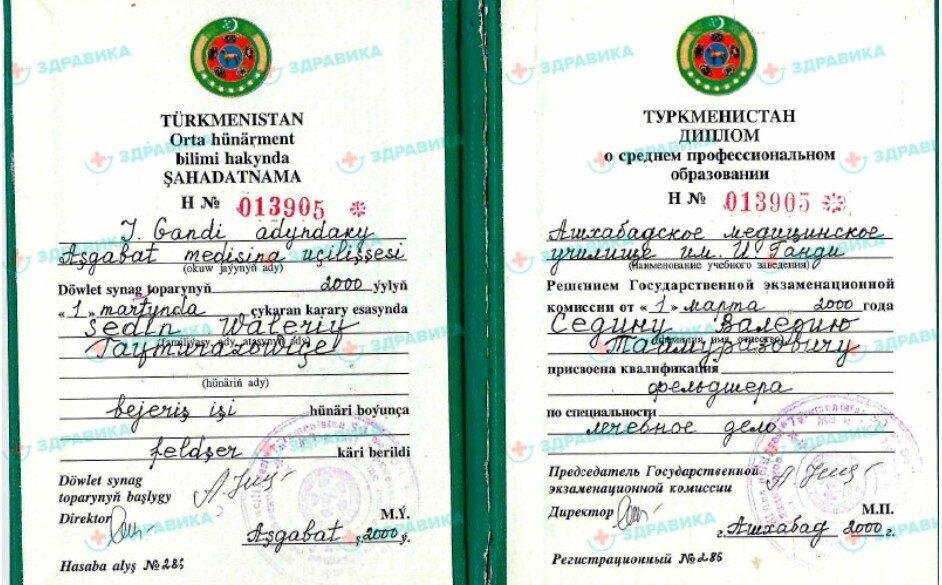 TÜRKMENISTAN
Orta hünärment
bilimi hakynda
ŞAHADATNAMA
Н № 013905 *
J. Gandi adyndaky
Aşgabat medisina uçilişşesi
(okuw jaýynyň ady)
Döwlet synag toparynyň 2000 ýylyň
« 1 » martynda çykaran karary esasynda
Sedin Waleriý
Taýmurazowiçe
(familiýasy, ady, atasynyň ady)
(hünäriň ady)
bejeriş işi hünäri boýunça
feldşer käri berildi
Döwlet synag
toparynyň başlygy
Direktor M.Ý.
Aşgabat ş. 2000 ý.
Hasaba alyş № 286
ТУРКМЕНИСТАН
ДИПЛОМ
о среднем профессиональном
образовании
Н № 013905 *
Ашхабадское медицинское
училище им. И. Ганди
(Наименование учебного заведения)
Решением Государственной экзаменационной
комиссии от « 1 » марта 2000 года
Седину Валерию
Таймуразовичу
(фамилия, имя, отчество)
присвоена квалификация
фельдшера
по специальности
лечебное дело
Председатель Государственной
экзаменационной комиссии
Директор М.П.
г. Ашхабад 2000 г.
Регистрационный № 286
ЗДРАВИКА